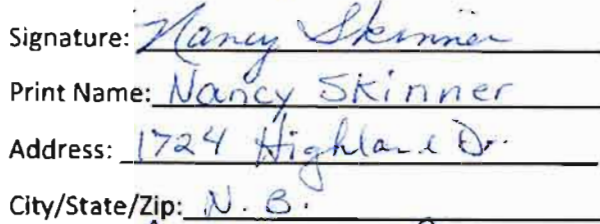 Signature: Nancy Skinner
Print Name: Nancy Skinner
Address: 1724 Highland Dr.
City/State/Zip: N. B.